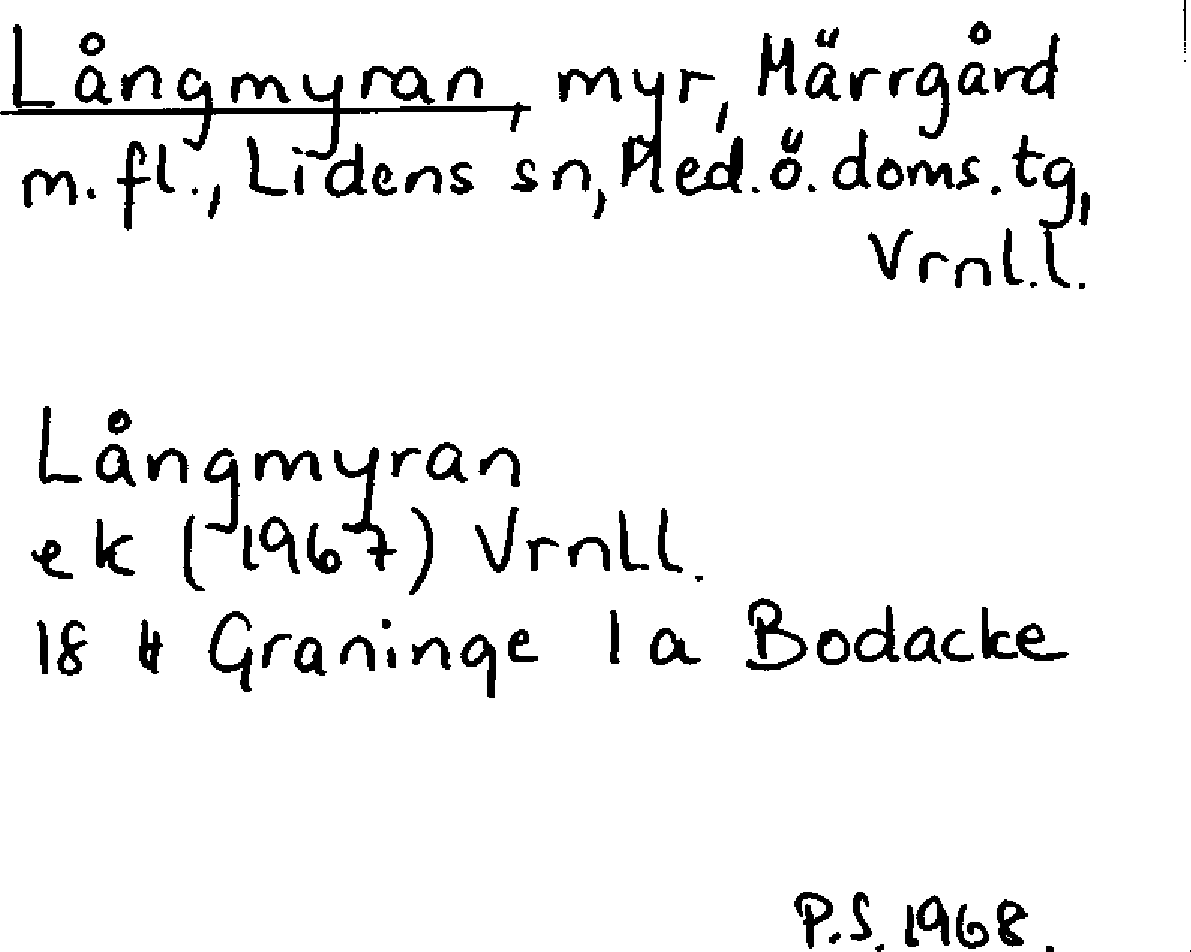 Långmyran, myr, Märrgård
m. fl., Lidens sn, Med. ö. doms. tg,
Vrnl. l.
Långmyran
ek (1967) Vrnll.
18 H Graninge 1a Bodacke
P.S. 1968.